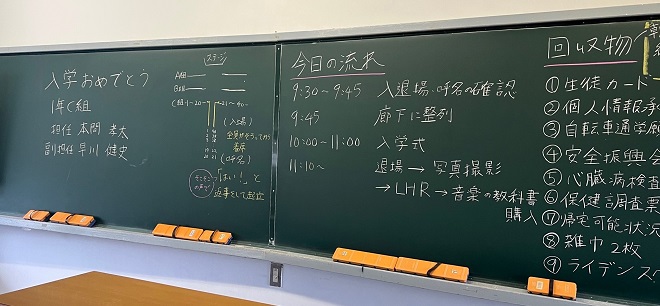 入学おめでとう
1年C組
担任 本間 孝太
副担任 早川 健史
ステージ
A組
B組
C組 1~20 21~40
(入場)
全員がそろってから
着席
(呼名)
「はい!」と
返事をして起立
今日の流れ
9:30~9:45 入退場・呼名の確認
9:45 廊下に整列
10:00~11:00 入学式
11:10~ 退場→写真撮影
→LHR→音楽の教科書
購入
回収物
①生徒カード
②個人情報承
③自転車通学
④安全振興会
⑤心臓病検査
⑥保健調査票
⑦帰宅可能状況
⑧雑巾2枚
⑨ライデンス